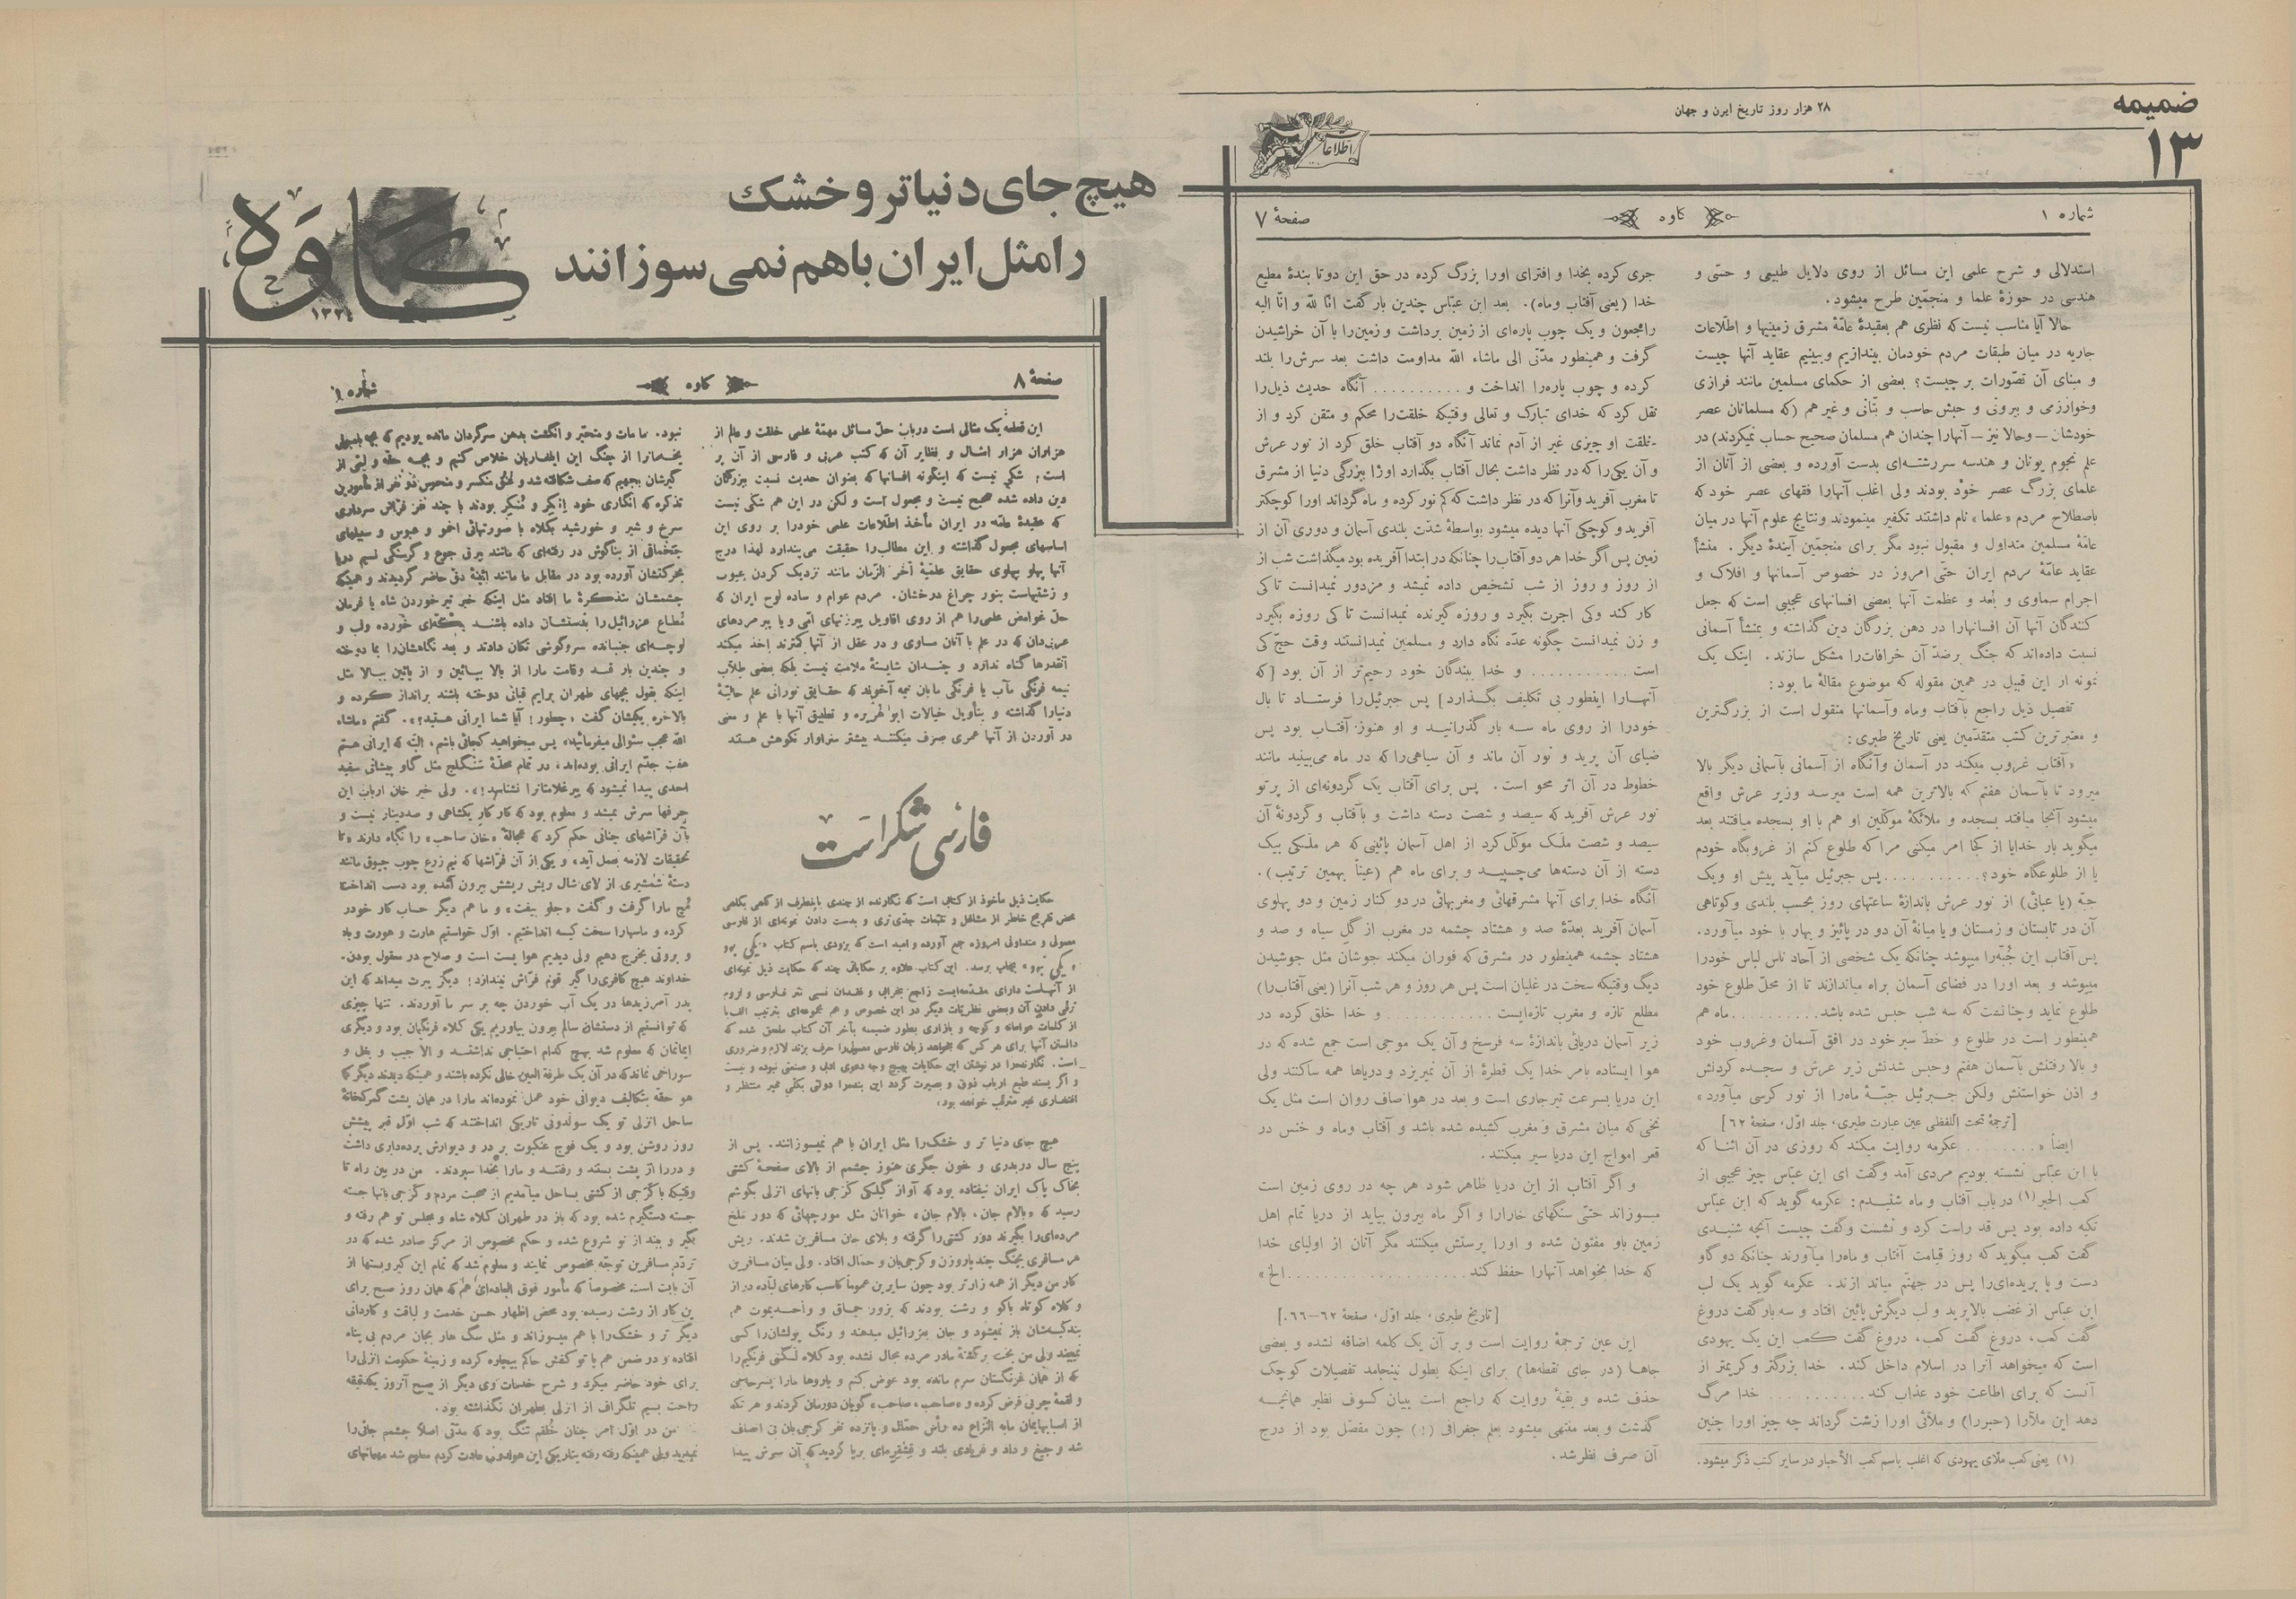 ضمیمه
۲۸ هزار روز تاریخ ایرن و جهان
۱۳
اطلاعات
شماره ۱
کاوه
صفحهٔ ۷
استدلالی و شرح علمی این مسائل از روی دلایل طبیعی و حسّی و
هندسی در حوزهٔ علما و منجّمین طرح میشود.
حالا آیا مناسب نیست که نظری هم بعقیدهٔ عامّهٔ مشرق زمینیها و اطّلاعات
جاریه در میان طبقات مردم خودمان بیندازیم وببینیم عقاید آنها چیست
و مبنای آن تصّورات بر چیست؟ بعضی از حکمای مسلمین مانند فرازی
وخوارزمی و بیرونی و حبش حاسب و بتّانی و غیر هم (که مسلمانان عصر
خودشان — وحالا نیز — آنهارا چندان هم مسلمان صحیح حساب نمیکردند) در
علم نجوم یونان و هندسه سررشتـهای بدست آورده و بعضی از آنان از
علمای بزرگ عصر خود بودند ولی اغلب آنهارا فقهای عصر خود که
باصطلاح مردم «علما» نام داشتند تکفیر مینمودند ونتایج علوم آنها در میان
عامّهٔ مسلمین متداول و مقبول نبود مگر برای منجمّین آیندهٔ دیگر. منشأ
عقاید عامّهٔ مردم ایران حتّی امروز در خصوص آسمانها و افلاک و
اجرام سماوی و بُعد و عظمت آنها بعضی افسانهای عجیبی است که جعل
کنندگان آنها آن افسانهارا در دهن بزرگان دین گذاشته و بمنشأ آسمانی
نسبت داده‌اند که جنگ برضدّ آن خرافات‌را مشکل سازند. اینک یک
نمونه از این قبیل در همین مقوله که موضوع مقالهٔ ما بود:
تفصیل ذیل راجع بآفتاب وماه وآسمانها منقول است از بزرگـترین
و معتبرترین کتب متقدّمین یعنی تاریخ طبری:
«آفتاب غروب میکند در آسمان وآنگاه از آسمانی بآسمانی دیگر بالا
میرود تا بآسمان هفتم که بالاترین همه است میرسد وزیر عرش واقع
میشود آنجا میافتد بسجده و ملائکهٔ موکّلین او هم با او بسجده میافتند بعد
میگوید بار خدایا از کجا امر میکنی مرا که طلوع کنم از غروبگاه خودم
یا از طلوعگاه خود؟...........پس جبرئیل میآید پیش او ویک
جبّه (یا عبائی) از نور عرش باندازهٔ ساعتهای روز بحسب بلندی وکوتاهی
آن در تابستان و زمستان و یا میانهٔ آن دو در پائیز و بهار با خود میآورد.
پس آفتاب این جُبّه‌را میپوشد چنانکه یک شخصی از آحاد ناس لباس خودرا
میپوشد و بعد اورا در فضای آسمان براه میاندازند تا از محلّ طلوع خود
طلوع نماید وچنانست که سه شب حبس شده باشد..........ماه هم
همینطور است در طلوع و خطّ سیر خود در افق آسمان وغروب خود
و بالا رفتنش بآسمان هفتم وحبس شدنش زیر عرش و سجـده کردنش
و اذن خواستنش ولکن جـبرئیل جبّـهٔ ماه‌را از نور کرسی میآورد»
[ترجمهٔ تحت اللّفظی عین عبارت طبری، جلد اوّل، صفحهٔ ۶۲]
ایضاً «........ عکرمه روایت میکند که روزی در آن اثنـا که
با ابن عبّاس نشسته بودیم مردی آمد وگفت ای ابن عبّاس چیز عجیبی از
کعب الحبر(۱) در باب آفتاب و ماه شنیـدم: عکرمه گوید که ابن عبّاس
تکیه داده بود پس قد راست کرد و نشست وگفت چیست آنچه شنیـدی
گفت کعب میگوید که روز قیامت آفتاب و ماه‌را میآورند چنانکه دو گاو
دست و پا بریده‌ای‌را پس در جهنّم میاندازند. عکرمه گوید یک لب
ابن عباس از غضب بالا پرید و لب دیگرش پائین افتاد و سه بار گفت دروغ
گفت کعب، دروغ گفت کعب، دروغ گفت کعب این یک یهودی
است که میخواهد آنرا در اسلام داخل کند. خدا بزرگتر و کریمتر از
آنست که برای اطاعت خود عذاب کند........... خدا مرگ
دهد این ملّارا (حبررا) و ملّائی اورا زشت گرداند چه چیز اورا چنین
(۱) یعنی کعب ملّای یهودی که اغلب باسم کعب الأحبار در سایر کتب ذکر میشود.
جری کرده بخدا و افترای اورا بزرگ کرده در حق این دوتا بندهٔ مطیع
خدا (یعنی آفتاب وماه). بعد ابن عبّاس چندین بار گفت انّا للّه و انّا الیه
راجعون و یک چوب پاره‌ای از زمین برداشت و زمین‌را با آن خراشیدن
گرفت و همینطور مدّتی الی ماشاء اللّه مداومت داشت بعد سرش‌را بلند
کرده و چوب پاره‌را انداخت و.......... آنگاه حدیث ذیل‌را
نقل کرد که خدای تبارک و تعالی وقتیکه خلقت‌را محکم و متقن کرد و از
خلقت او چیزی غیر از آدم نماند آنگاه دو آفتاب خلق کرد از نور عرش
و آن یکی‌را که در نظر داشت بحال آفتاب بگذارد اورا بزرگی دنیا از مشرق
تا مغرب آفرید وآنرا که در نظر داشت که کم نور کرده و ماه گرداند اورا کوچکتر
آفرید و کوچکی آنها دیده میشود بواسطهٔ شدّت بلندی آسمان و دوری آن از
زمین پس اگر خدا هر دو آفتاب‌را چنانکه در ابتدا آفریده بود میگذاشت شب از
از روز و روز از شب تشخیص داده نمیشد و مزدور نمیدانست تا کی
کار کند وکی اجرت بگیرد و روزه گیرنده نمیدانست تا کی روزه بگیرد
و زن نمیدانست چگونه عدّه نگاه دارد و مسلمین نمیدانستند وقت حجّ کی
است........... و خدا ببندگان خود رحیم‌تر از آن بود [که
آنهـارا اینطور بی تکلیف بگـذارد] پس جبرئیل‌را فرستـاد تا بال
خودرا از روی ماه سـه بار گذرانیـد و او هنوز آفتـاب بود پس
ضیای آن پرید و نور آن ماند و آن سیاهی‌را که در ماه می‌بینید مانند
خطوط در آن اثر محو است. پس برای آفتاب یک گردونه‌ای از پرتو
نور عرش آفرید که سیصد و شصت دسته داشت و بآفتاب و گردونهٔ آن
سیصد و شصت ملَک موکّل کرد از اهل آسمان پائینی که هر ملَـکی بیک
دسته از آن دسته‌ها می‌چسپیـد و برای ماه هم (عیناً بهمین ترتیب).
آنگاه خدا برای آنها مشرقهائی و مغربهائی در دو کنار زمین و دو پهلوی
آسمان آفرید بعدّهٔ صد و هشتاد چشمه در مغرب از گل سیاه و صد و
هشتاد چشمه همینطور در مشرق که فوران میکند جوشان مثل جوشیدن
دیگ وقتیکه سخت در غلیان است پس هر روز و هر شب آنرا (یعنی آفتاب‌را)
مطلع تازه و مغرب تازه‌ایست............ و خدا خلق کرده در
زیر آسمان دریائی باندازهٔ سه فرسخ وآن یک موجی است جمع شده که در
هوا ایستاده بامر خدا یک قطرهٔ از آن نمیریزد و دریاها همه ساکنند ولی
این دریا بسرعت تیر جاری است و بعد در هوا صاف روان است مثل یک
نخی که میان مشرق و مغرب کشیده شده باشد و آفتاب وماه و خنس در
قعر امواج این دریا سیر میکنند.
و اگر آفتاب از این دریا ظاهر شود هر چه در روی زمین است
میسوزاند حتّی سنگهای خارارا و اگر ماه بیرون بیاید از دریا تمام اهل
زمین باو مفتون شده و اورا پرستش میکنند مگر آنان از اولیای خدا
که خدا بخواهد آنهارا حفظ کند....................الخ»
[تاریخ طبری، جلد اوّل، صفحهٔ ۶۲—۶۶.]
این عین ترجمهٔ روایت است و بر آن یک کلمه اضافه نشده و بعضی
جاهـا (در جای نقطه‌ها) برای اینکه بطول نینجامد تفصیلات کوچک
حذف شده و بقیّهٔ روایت که راجع است ببیان کسوف نظیر همانیـه
گذشت و بعد منتهی میشود بعلم جغرافی (!) چون مفصّل بود از درج
آن صرف نظر شد.
هیچ جای دنیا تر و خشک
را مثل ایران با هم نمی سوزانند
کاوه
صفحهٔ ۸
کاوه
شماره ۱
این قطعه یک مثالی است درباب حلّ مسائل مهمّهٔ علمی خلقت و عالم از
هزاران هزار امثال و نظایر آن که کتب عربی و فارسی از آن پر
است؛ شکّی نیست که اینگونه افسانها که بعنوان حدیث نسبت ببزرگان
دین داده شده صحیح نیست و مجعول است و لکن در این هم شکّی نیست
که عقیدهٔ عامّه در ایران مأخذ اطّلاعات علمی خودرا بر روی این
اساسهای مجعول گذاشته و این مطالب‌را حقیقت می‌پندارد لهذا درج
آنها پهلو بپهلوی حقایق علمیّهٔ آخر الزّمان مانند نزدیک کردن عیوب
و زشتیهاست بنور چراغ درخشان. مردم عوام و ساده لوح ایران که
حلّ غوامض علمی‌را هم از روی اقاویل پیرزنهای امّی و یا پیرمردهای
عربی‌دان که در علم با آنان مساوی و در عقل از آنها کمترند اخذ میکند
آنقدرها گناه ندارد و چنـدان شایستهٔ ملامت نیست بلکه بعضی طلّاب
نیمه فرنگی مآب یا فرنگی مابان نیمه آخوند که حقـایق نورانی علم حالیّهٔ
دنیارا گذاشته و بتأویل خیالات ابو هُریره و تطبیق آنها با علم و معنی
در آوردن از آنها عمری صرف میکننـد بیشتر سزاوار نکوهش هستند
فارسی شکر است
حکایت ذیل مأخوذ از کتابی است که نگارنده از چندی باینطرف از گاهی بگاهی
محض تفریح خاطر از مشاغل و تتبّعات جدّی‌تری و بدست دادن نمونه‌ای از فارسی
معمولی و متداولی امروزه جمع آورده و امید است که بزودی باسم کتاب «یکی بود
و یکی نبود» بچاپ برسد. این کتاب علاوه بر حکایاتی چند که حکایت ذیل نمونه‌ای
از آنهـاست دارای مقـدّمه‌ایست راجع بخرابی و فقـدان نسبی نثر فـارسی و لزوم
ترقّی دادن آن وبعضی نظریّات دیگر در این خصوص و هم مجموعه‌ای بترتیب الف‌با
از کلمات عوامانه و کوچه و بازاری بطور ضمیمه بآخر آن کتاب ملحق شده که
دانستن آنها برای هر کس که بخواهد زبان فارسی معمولی‌را حرف بزند لازم و ضروری
است. نگارنده‌را در نوشتن این حکایات بهیچ وجه دعوی ادبی و صنعتی نبوده و نیست
و اگر پسند طبع ارباب ذوق و بصیرت گردد این بنده‌را دولتی بکلّی غیر منتظر و
افتخاری غیر مترقّب خواهد بود.
هیچ جای دنیا تر و خشک‌را مثل ایران با هم نمیسوزانند. پس از
پنج سال دربدری و خون جگری هنوز چشمم از بالای صفحـهٔ کشتی
بخاک پاک ایران نیفتاده بود که آواز گیلکی کرّجی بانهای انزلی بگوشم
رسید که «بالام جان، بالام جان» خوانان مثل مورچهائی که دور ملخ
مرده‌ای‌را بگیرند دور کشتی‌را گرفته و بلای جان مسافرین شدند. ریش
هر مسافری بچنگ چند پاروزن و کرجی‌بان و حمّال افتاد. ولی میان مسافرین
کار من دیگر از همه زارتر بود چون سایرین عموماً کاسب کارهای لبّاده دراز
و کلاه کوتاه باکو و رشت بودند که بزور چمـاق و واحـد یموت هم
بند کیسه‌شان باز نمیشود و جان بعزرائیل میدهند و رنگ پولشان‌را کسی
نمیبیند ولی من بخت برگشتهٔ مادر مرده مجال نشده بود کلاه لگنی فرنگیم‌را
که از همان فرنگستان سرم مانده بود عوض کنم و یاروها مارا پسر حاجی
و لقمهٔ چربی فرض کرده و «صاحب، صاحب» گویان دورمان کردند و هر تکه
از اسبابهایمان مابه النّزاع ده رأس حمّال و پانزده نفر کرجی‌بان بی انصاف
شد و جیغ و داد و فریادی بلند و قِشقِره‌ای برپا گردید که آن سرش پیدا
نبود. ما مات و متحیّر و انگشت بدهن سرگردان مانده بودیم که بچه بامبولی
یخـه‌مانرا از چنگ این ایلغاریان خلاص کنیم و بچـه حقّه و لمّی از
گیرشان بجهیم که صف شکافته شد و عُنق منکسر و منحوس دو نفر از مأمورین
تذکره که انگاری خود اِنکِر و مُنکِر بودند با چند نفر فرّاش سرداری
سرخ و شیر و خورشید بکلاه با صورتهائی اخمو و عبوس و سبیلهای
چخماقی از بناگوش در رفته‌ای که مانند بیرق جوع و گرسنگی نسیم دریا
بحرکتشان آورده بود در مقابل ما مانند آئینهٔ دق حاضر گردیدند و همینکه
چشمشان بتذکـرهٔ ما افتاد مثل اینکه خبر تیر خوردن شاه یا فرمان
مُطاع عزرائیل‌را بدستشان داده باشند یکّه‌ای خورده ولب و
لوچـه‌ای جنبانده سر و گوشی تکان دادند و بعد نگاهشان‌را بما دوخته
و چندین بار قـد وقامت مارا از بالا بپـائین و از پائین ببالا مثل
اینکه بقول بچهای طهران برایم قبائی دوخته باشند برانداز کـرده و
بالاخره یکیشان گفت «چطور! آیا شما ایرانی هستید؟». گفتم «ماشاء
اللّه عجب سئوالی میفرمائید، پس میخواهید کجائی باشم، البتّه که ایرانی هستم
هفت جدّم ایرانی بوده‌اند، در تمام محلّهٔ سَنگلج مثل گاو پیشانی سفید
احدی پیدا نمیشود که پیر غلامتانرا نشناسد!». ولی خیر خان ارباب این
حرفها سرش نمیشد و معلوم بود که کار کار یکشاهی و صد دینار نیست و
بآن فرّاشهای چنانی حکم کرد که عجالةً «خان صاحب» را نگاه دارند «تا
تحقیقات لازمه بعمل آید» و یکی از آن فرّاشها که نیم زرع چوب چپوق مانند
دستهٔ شمشیری از لای شال ریش ریشش بیرون آمده بود دست انداخت
مُچ مارا گرفت و گفت «جلو بیفت» و ما هم دیگر حساب کار خودر
کرده و ماسهارا سخت کیسه انداختیم. اوّل خواستیم هارت و هورت و باد
و بروتی بخرج دهیم ولی دیدیم هوا پست است و صلاح در معقول بودن.
خداوند هیچ کافری‌را گیر قوم فرّاش نیندازد! دیگر پیرت میداند که این
پدر آمرزیدها در یک آب خوردن چه بر سر ما آوردند. تنها چیزی
که توانستیم از دستشان سالم بیرون بیاوریم یکی کلاه فرنگیمان بود و دیگری
ایمانمان که معلوم شد بهیچ کدام احتیاجی نداشتـند و الّا جیب و بغل و
سوراخی نماند که در آن یک طرفة العین خالی نکرده باشند و همینکه دیدند دیگر کما
هو حقّه بتکالیف دیوانی خود عمل نموده‌اند مارا در همان پشت گمرکخانهٔ
ساحل انزلی تو یک سولدونی تاریکی انداختند که شب اوّل قبر پیشش
روز روشن بود و یک فوج عنکبوت بر در و دیوارش پرده‌داری داشت
و در‌را از پشت بستند و رفتنـد و مارا بخُدا سپردند. من در بین راه تا
وقتیکه با کرجی از کشتی بساحل میآمدیم از صحبت مردم و کرجی بانها جسته
جسته دستگیرم شده بود که باز در طهران کلاه شاه و مجلس تو هم رفته و
بگیر و ببند از نو شروع شده و حکم مخصوص از مرکز صادر شده که در
تردّد مسافرین توجّه مخصوص نمایند و معلوم شد که تمام این گیروبستها از
آن بابت است مخصوصاً که مأمور فوق العاده‌ای هم که همان روز صبح برای
این کار از رشت رسیده بود محض اظهار حسن خدمت و لیاقت و کاردانی
دیگر تر و خشک‌را با هم میسوزاند و مثل سگ هار بجان مردم بی پناه
افتاده و در ضمن هم پا تو کفش حاکم بیچاره کرده و زمینهٔ حکومت انزلی‌را
برای خود حاضر میکرد و شرح خدمات وی دیگر از صبح آنروز یکدقیقه
راحت بسیم تلگراف از انزلی بطهران نگذاشته بود.
من در اوّل امر چنان خُلقم تنگ بود که مدّتی اصلاً چشمم جائی‌را
نمیدید ولی همینکه رفته رفته بتاریکی این هولدونی عادت کردم معلوم شد مهمانهای